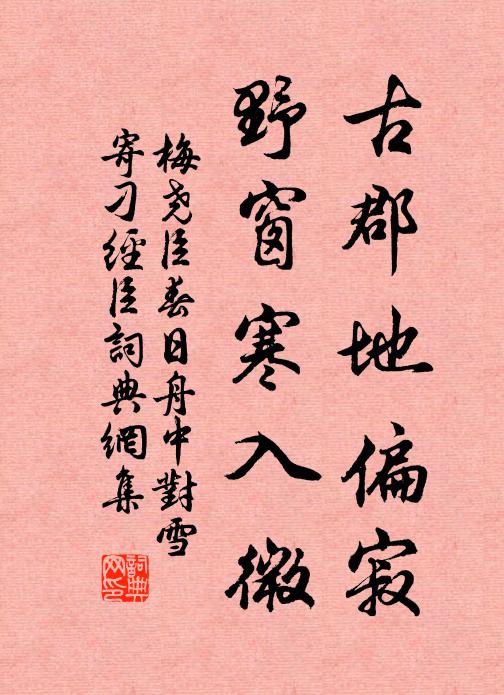 古郡地偏寂
野窗寒入微
梅尧臣春日舟中對雪
寄刁經臣詞典網集
詞典网印